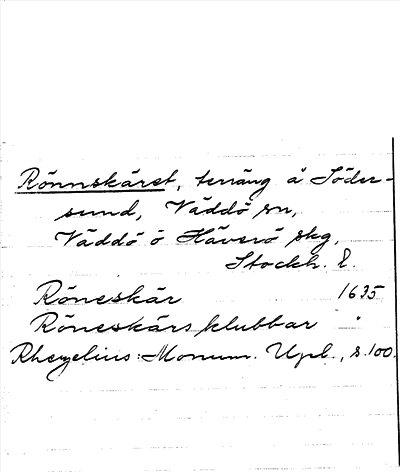 Rönnskäret, terräng å Söder-
sund, Väddö sn,
Väddö o Häverö skg,
Stockh. l.
Röneskär 1635
Röneskärs klubbar "
Rhezelius: Monum. Upl., s. 100.